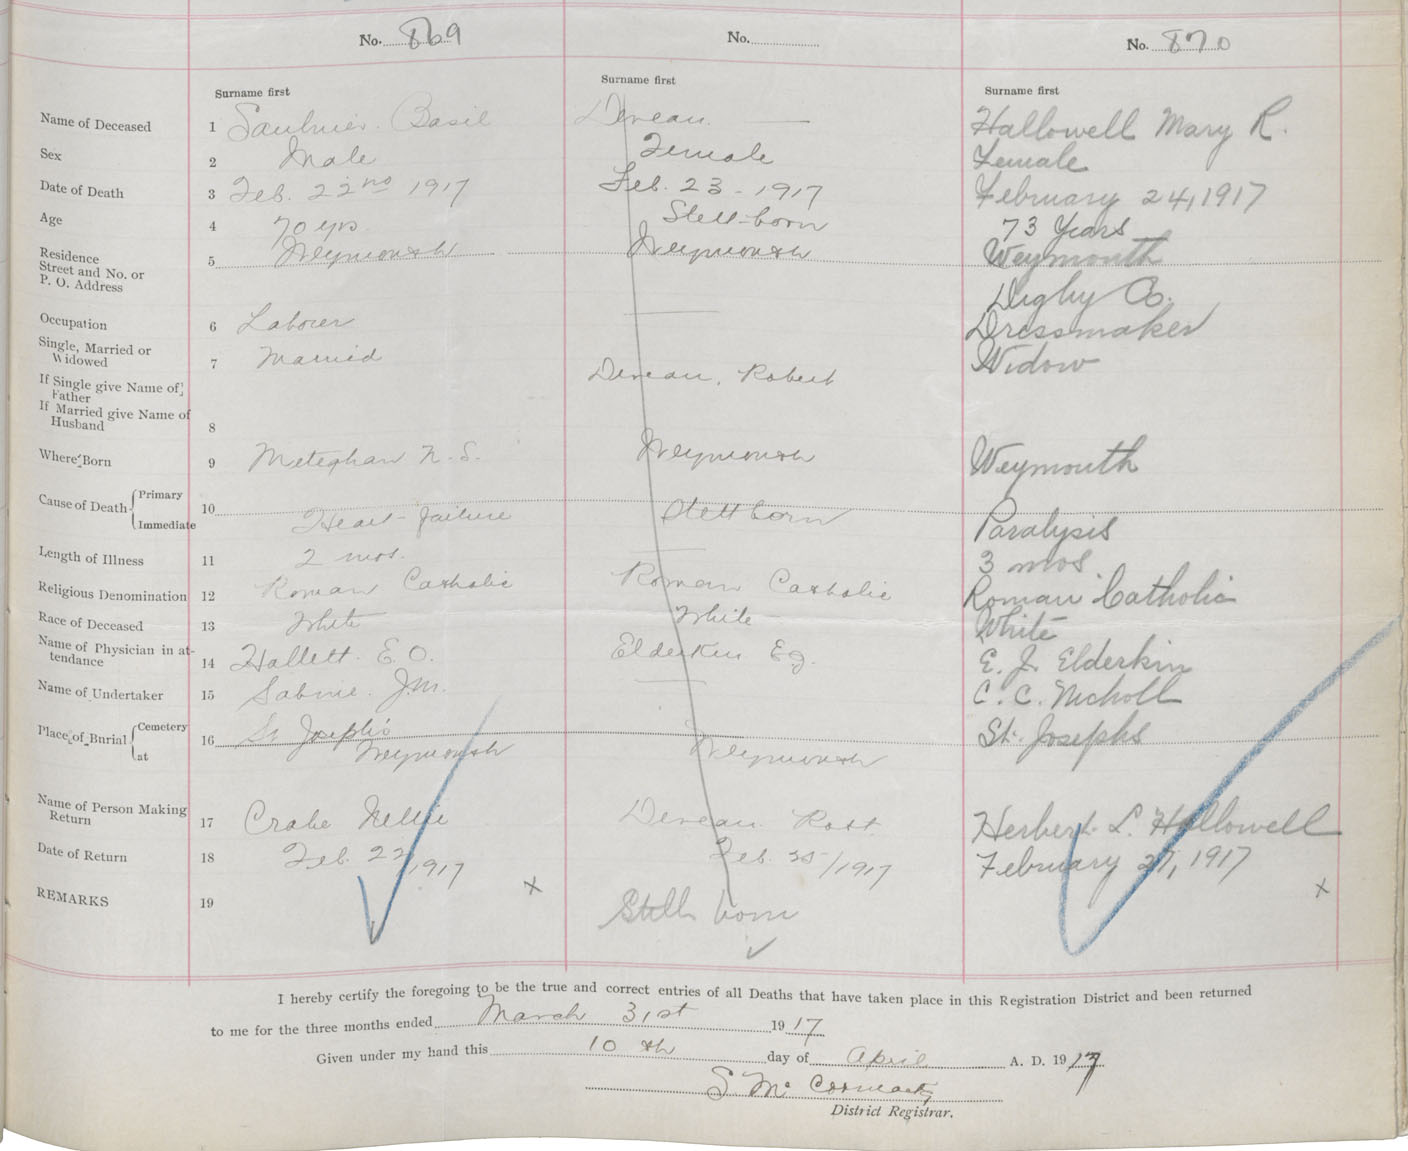 No. 869
No.
No. 870
Surname first
Surname first
Surname first
Name of Deceased 1 Saulnier. Basil Deveau. Hallowell Mary R.
Sex 2 Male Female Female
Date of Death 3 Feb. 22nd 1917 Feb. 23 - 1917 February 24, 1917
Age 4 70 yrs Still-born 73 Years
Residence Street and No. or P. O. Address 5 Weymouth Weymouth Weymouth
Digby Co.
Occupation 6 Laborer Dressmaker
Single, Married or Widowed 7 Married Widow
If Single give Name of Father Deveau, Robert
If Married give Name of Husband 8
Where Born 9 Meteghan N.S. Weymouth Weymouth
Cause of Death Primary Immediate 10 Heart-failure Still born Paralysis
Length of Illness 11 2 mos. 3 mos.
Religious Denomination 12 Roman Catholic Roman Catholic Roman Catholic
Race of Deceased 13 White White White
Name of Physician in attendance 14 Hallett. E. O. Elderkin E.J. E. J. Elderkin
Name of Undertaker 15 Sabine. J.M. C. C. Nicholl
Place of Burial Cemetery at 16 St Joseph's St. Josephs
Weymouth Weymouth
Name of Person Making Return 17 Crabe Nellie Deveau. Robt. Herbert L. Hallowell
Date of Return 18 Feb. 22/1917 Feb. 25/1917 February 27, 1917
REMARKS 19 x Still born x
I hereby certify the foregoing to be the true and correct entries of all Deaths that have taken place in this Registration District and been returned
to me for the three months ended March 31st 1917
Given under my hand this 10th day of April A. D. 1917
S McCormack
District Registrar.